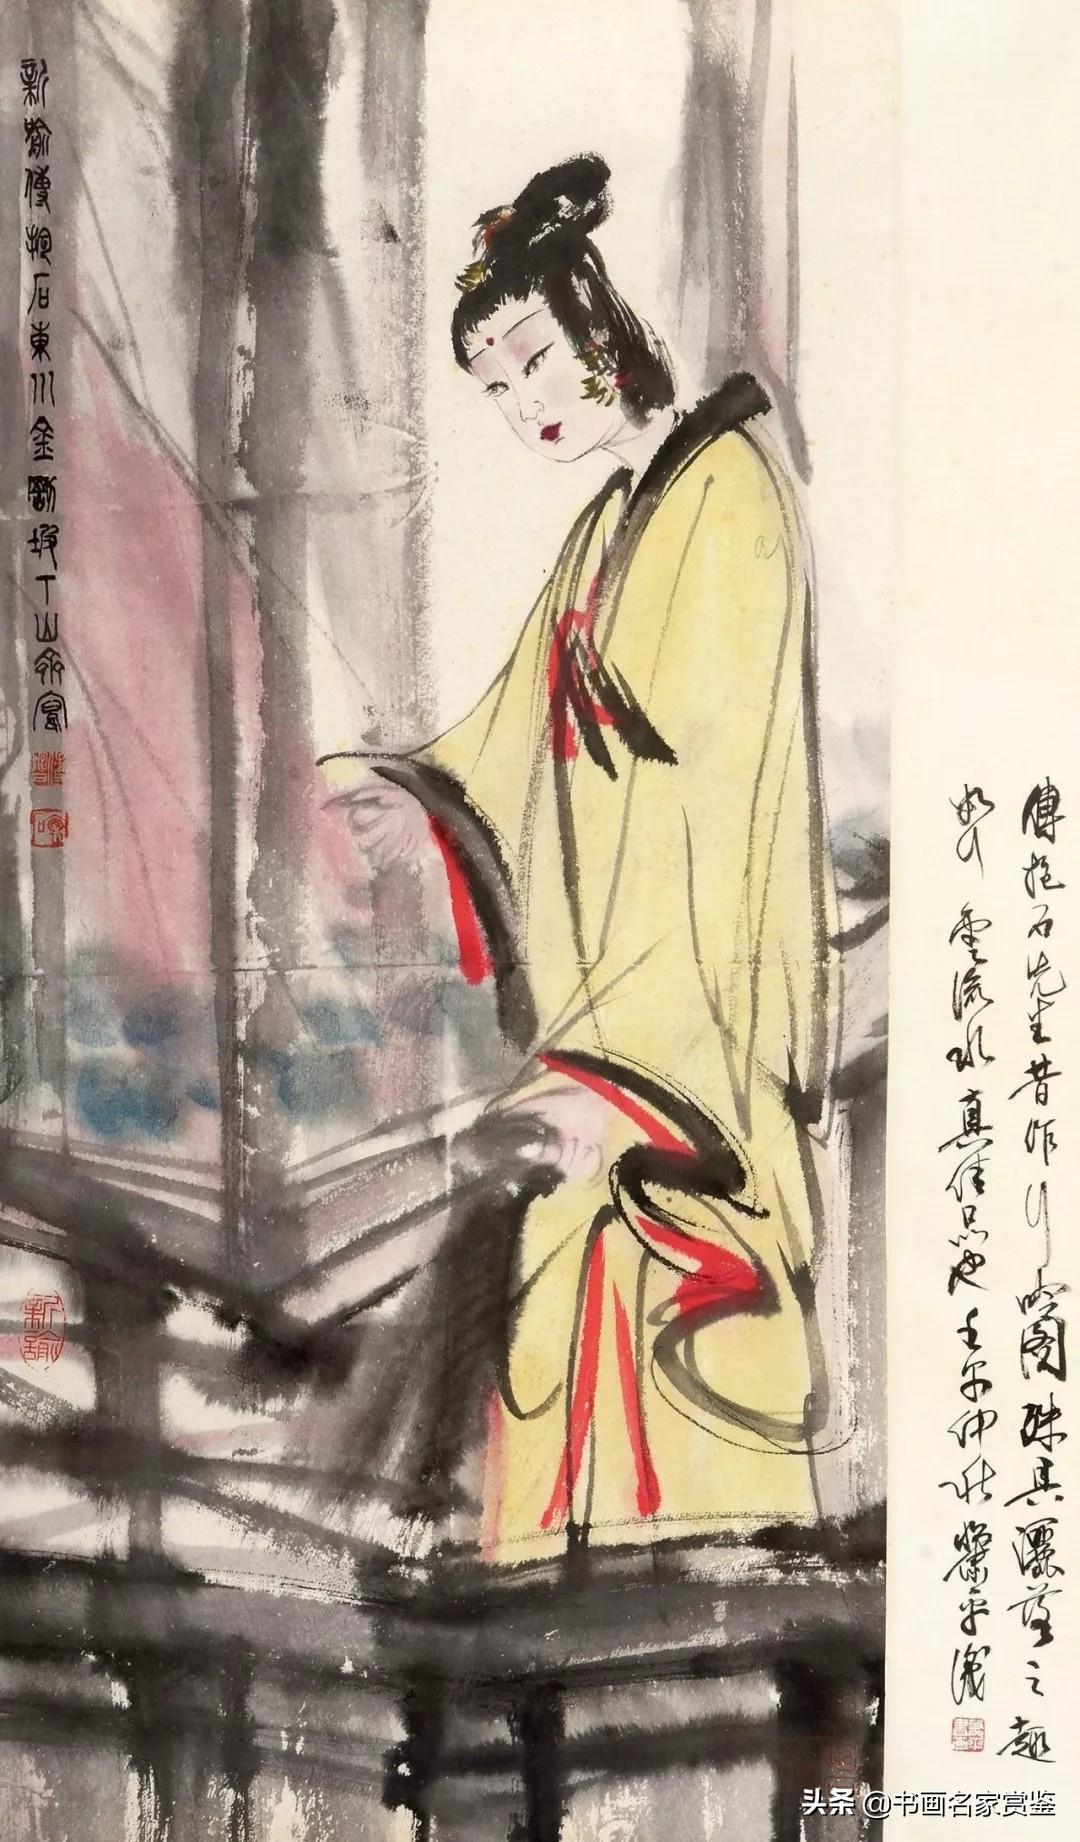 傅抱石先生昔作行吟圖殊具灑落之趣
如行雲流水真佳品也壬仲秋平識
新喻傅抱石東川金剛坡下山齋寫
新喻
头条 @书画名家赏鉴